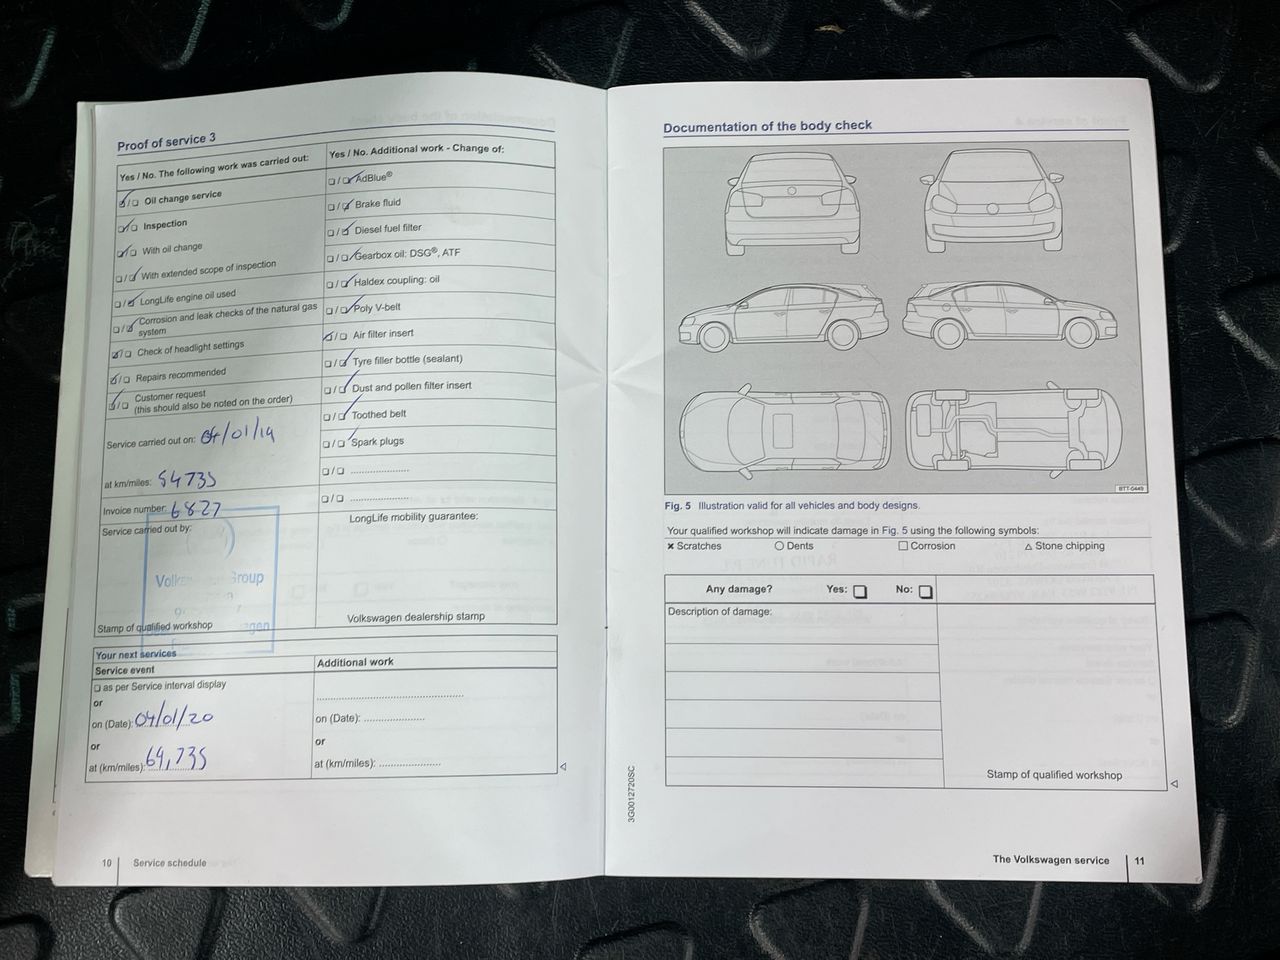 Proof of service 3
Yes / No. The following work was carried out:
Oil change service
Inspection
With oil change
With extended scope of inspection
LongLife engine oil used
Corrosion and leak checks of the natural gas
system
Check of headlight settings
Repairs recommended
Customer request
(this should also be noted on the order)
Service carried out on: 04/01/19
at km/miles: 54735
Invoice number: 6827
Service carried out by:
Group
Stamp of qualified workshop
Yes / No. Additional work - Change of:
AdBlue®
Brake fluid
Diesel fuel filter
Gearbox oil: DSG®, ATF
Haldex coupling: oil
Poly V-belt
Air filter insert
Tyre filler bottle (sealant)
Dust and pollen filter insert
Toothed belt
Spark plugs
LongLife mobility guarantee:
Volkswagen dealership stamp
Your next services
Service event
as per Service interval display
or
on (Date): 04/01/20
or
at (km/miles): 69,735
Additional work
on (Date):
or
at (km/miles):
10 Service schedule
Documentation of the body check
BTT-0449
Fig. 5 Illustration valid for all vehicles and body designs.
Your qualified workshop will indicate damage in Fig. 5 using the following symbols:
Scratches Dents Corrosion Stone chipping
Any damage? Yes: No:
Description of damage:
Stamp of qualified workshop
3G0012720SC
The Volkswagen service 11